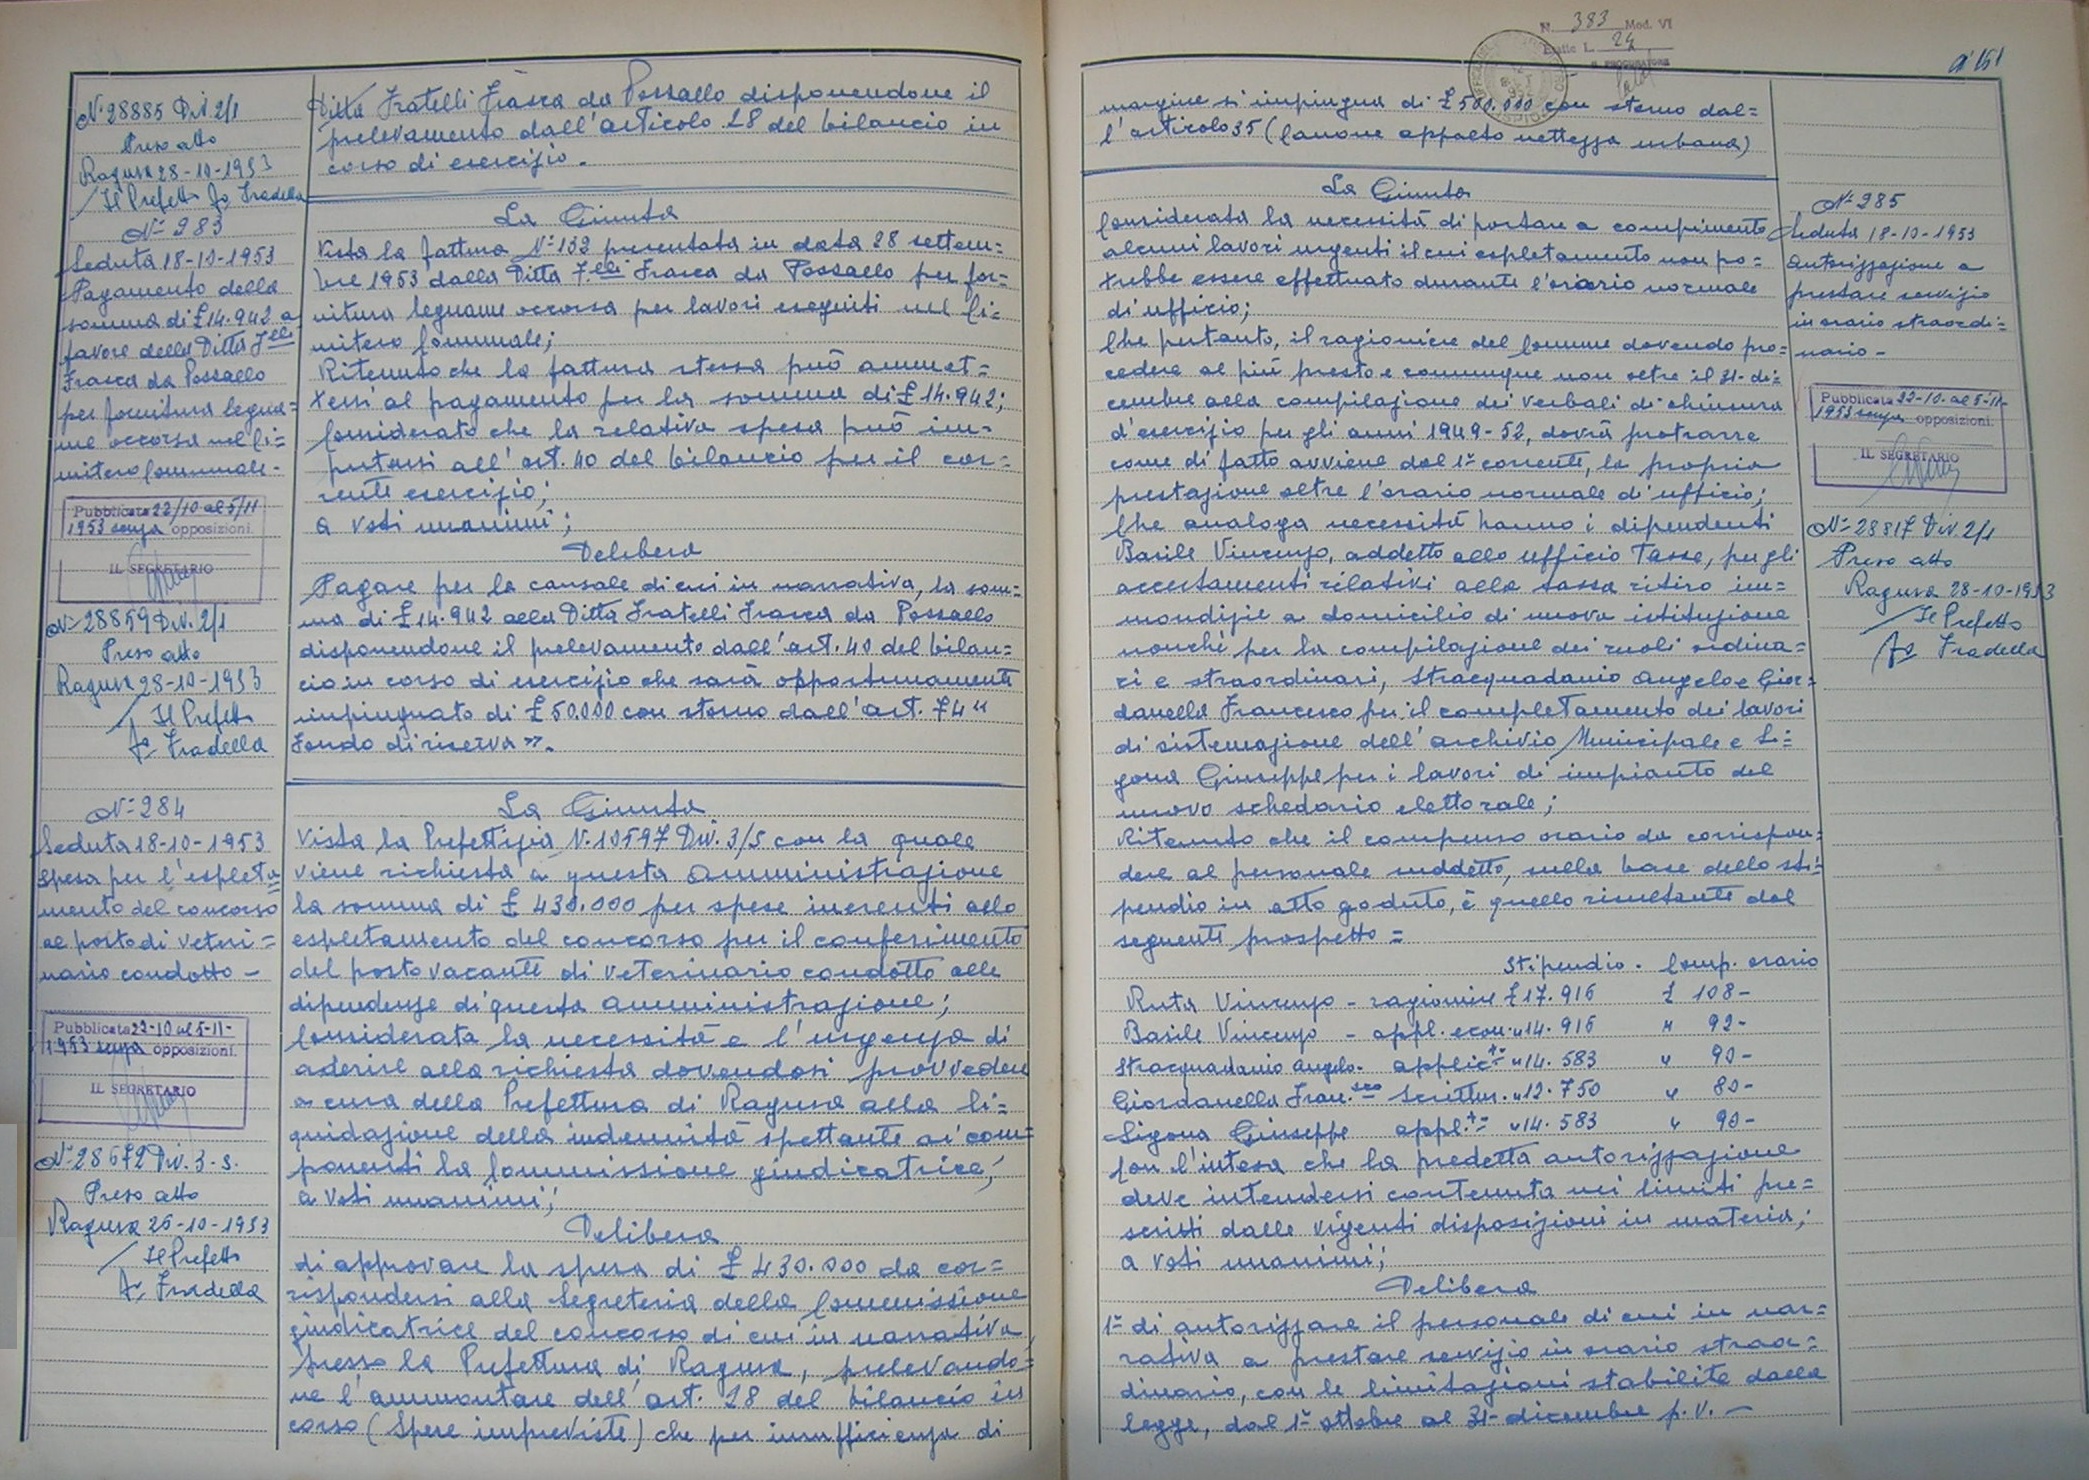 N. 28885 Div. 2/1
Preso atto
Ragusa 28-10-1953
Il Prefetto
Fo Fradella
N= 283
Seduta 18-10-1953
Pagamento della
somma di £ 14.942 a
favore della Ditta F.lli
Frasca da Pozzallo
per fornitura legna=
me occorso nel Ci=
mitero Comunale-
Pubblicata 22/10 al 5/11
1953 senza opposizioni.
IL SEGRETARIO
N= 28859 Div. 2/1
Preso atto
Ragusa 28-10-1953
Il Prefetto
Fo Fradella
N= 284
Seduta 18-10-1953
Spesa per l'espleta=
mento del concorso
al posto di veteri=
nario condotto -
Pubblicata 22-10 al 5-11-
1953 senza opposizioni.
IL SEGRETARIO
N= 28672 Div. 3-S.
Preso atto
Ragusa 26-10-1953
Il Prefetto
Fo Fradella
Ditta Fratelli Frasca da Pozzallo disponendone il
prelevamento dall'articolo 28 del bilancio in
corso di esercizio.
La Giunta
Vista la fattura N= 132 presentata in data 28 settem=
bre 1953 dalla Ditta F.lli Frasca da Pozzallo per for=
nitura legname occorsa per lavori eseguiti nel Ci=
mitero Comunale;
Ritenuto che la fattura stessa può ammet=
tersi al pagamento per la somma di £ 14.942;
Considerato che la relativa spesa può im=
putarsi all'art. 40 del bilancio per il cor=
rente esercizio;
a voti unanimi;
Delibera
Pagare per la causale di cui in narrativa, la som=
ma di £ 14.942 alla Ditta Fratelli Frasca da Pozzallo
disponendone il prelevamento dall'art. 40 del bilan=
cio in corso di esercizio che sarà opportunamente
impinguato di £ 50.000 con storno dall'art. 74 "
Fondo di riserva ".
La Giunta
Vista la Prefettizia N. 10597 Div. 3/S con la quale
viene richiesta a questa Amministrazione
la somma di £ 430.000 per spese inerenti allo
espletamento del concorso per il conferimento
del posto vacante di veterinario condotto alle
dipendenze di questa Amministrazione;
Considerata la necessità e l'urgenza di
aderire alla richiesta dovendosi provvedere
a cura della Prefettura di Ragusa alla li=
quidazione della indennità spettante ai com=
ponenti la Commissione giudicatrice;
a voti unanimi;
Delibera
di approvare la spesa di £ 430.000 da cor=
rispondersi alla Segreteria della Commissione
giudicatrice del concorso di cui in narrativa,
presso la Prefettura di Ragusa, prelevando=
ne l'ammontare dell'art. 28 del bilancio in
corso (Spese impreviste) che per insufficienza di
N. 383 Mod. VI
Esatte L. 24
IL PROCURATORE
151
margine si impingua di £ 500.000 con storno dal=
l'articolo 35 (Canone appalto nettezza urbana)
La Giunta
Considerata la necessità di portare a compimento
alcuni lavori urgenti il cui espletamento non po=
trebbe essere effettuato durante l'orario normale
di ufficio;
Che pertanto, il ragioniere del Comune dovendo pro=
cedere al più presto e comunque non oltre il 31- di=
cembre alla compilazione dei verbali di chiusura
d'esercizio per gli anni 1949-52, dovrà protrarre
come di fatto avviene dal 1° corrente, la propria
prestazione oltre l'orario normale d'ufficio;
Che analoga necessità hanno i dipendenti
Basile Vincenzo, addetto allo ufficio Tasse, per gli
accertamenti relativi alla tassa ritiro im=
mondizie a domicilio di nuova istituzione
nonché per la compilazione dei ruoli ordina=
ri e straordinari, Stracquadanio Angelo e Gior=
danella Francesco per il completamento dei lavori
di sistemazione dell'archivio Municipale e Li=
gona Giuseppe per i lavori di impianto del
nuovo schedario elettorale;
Ritenuto che il compenso orario da corrispon=
dere al personale suddetto, sulla base dello sti=
pendio in atto goduto, è quello risultante dal
seguente prospetto =
Stipendio. Comp. orario
Ruta Vincenzo - ragioniere £ 17.916 £ 108-
Basile Vincenzo - appl. econ. " 14.916 " 92-
Stracquadanio Angelo- applic.to " 14.583 " 90-
Giordanella Fran.sco Scrittur. " 12.750 " 80-
Ligona Giuseppe appl.to " 14.583 " 90-
Con l'intesa che la predetta autorizzazione
deve intendersi contenuta nei limiti pre=
scritti dalle vigenti disposizioni in materia;
a voti unanimi;
Delibera
1° di autorizzare il personale di cui in nar=
rativa a prestare servizio in orario straor=
dinario, con le limitazioni stabilite dalla
legge, dal 1° ottobre al 31- dicembre p.v. -
N= 285
Seduta 18-10-1953
Autorizzazione a
prestare servizio
in orario straordi=
nario -
Pubblicata 22-10- al 5-11-
1953 senza opposizioni.
IL SEGRETARIO
N= 28817 Div. 2/1
Preso atto
Ragusa 28-10-1953
Il Prefetto
Fo Fradella